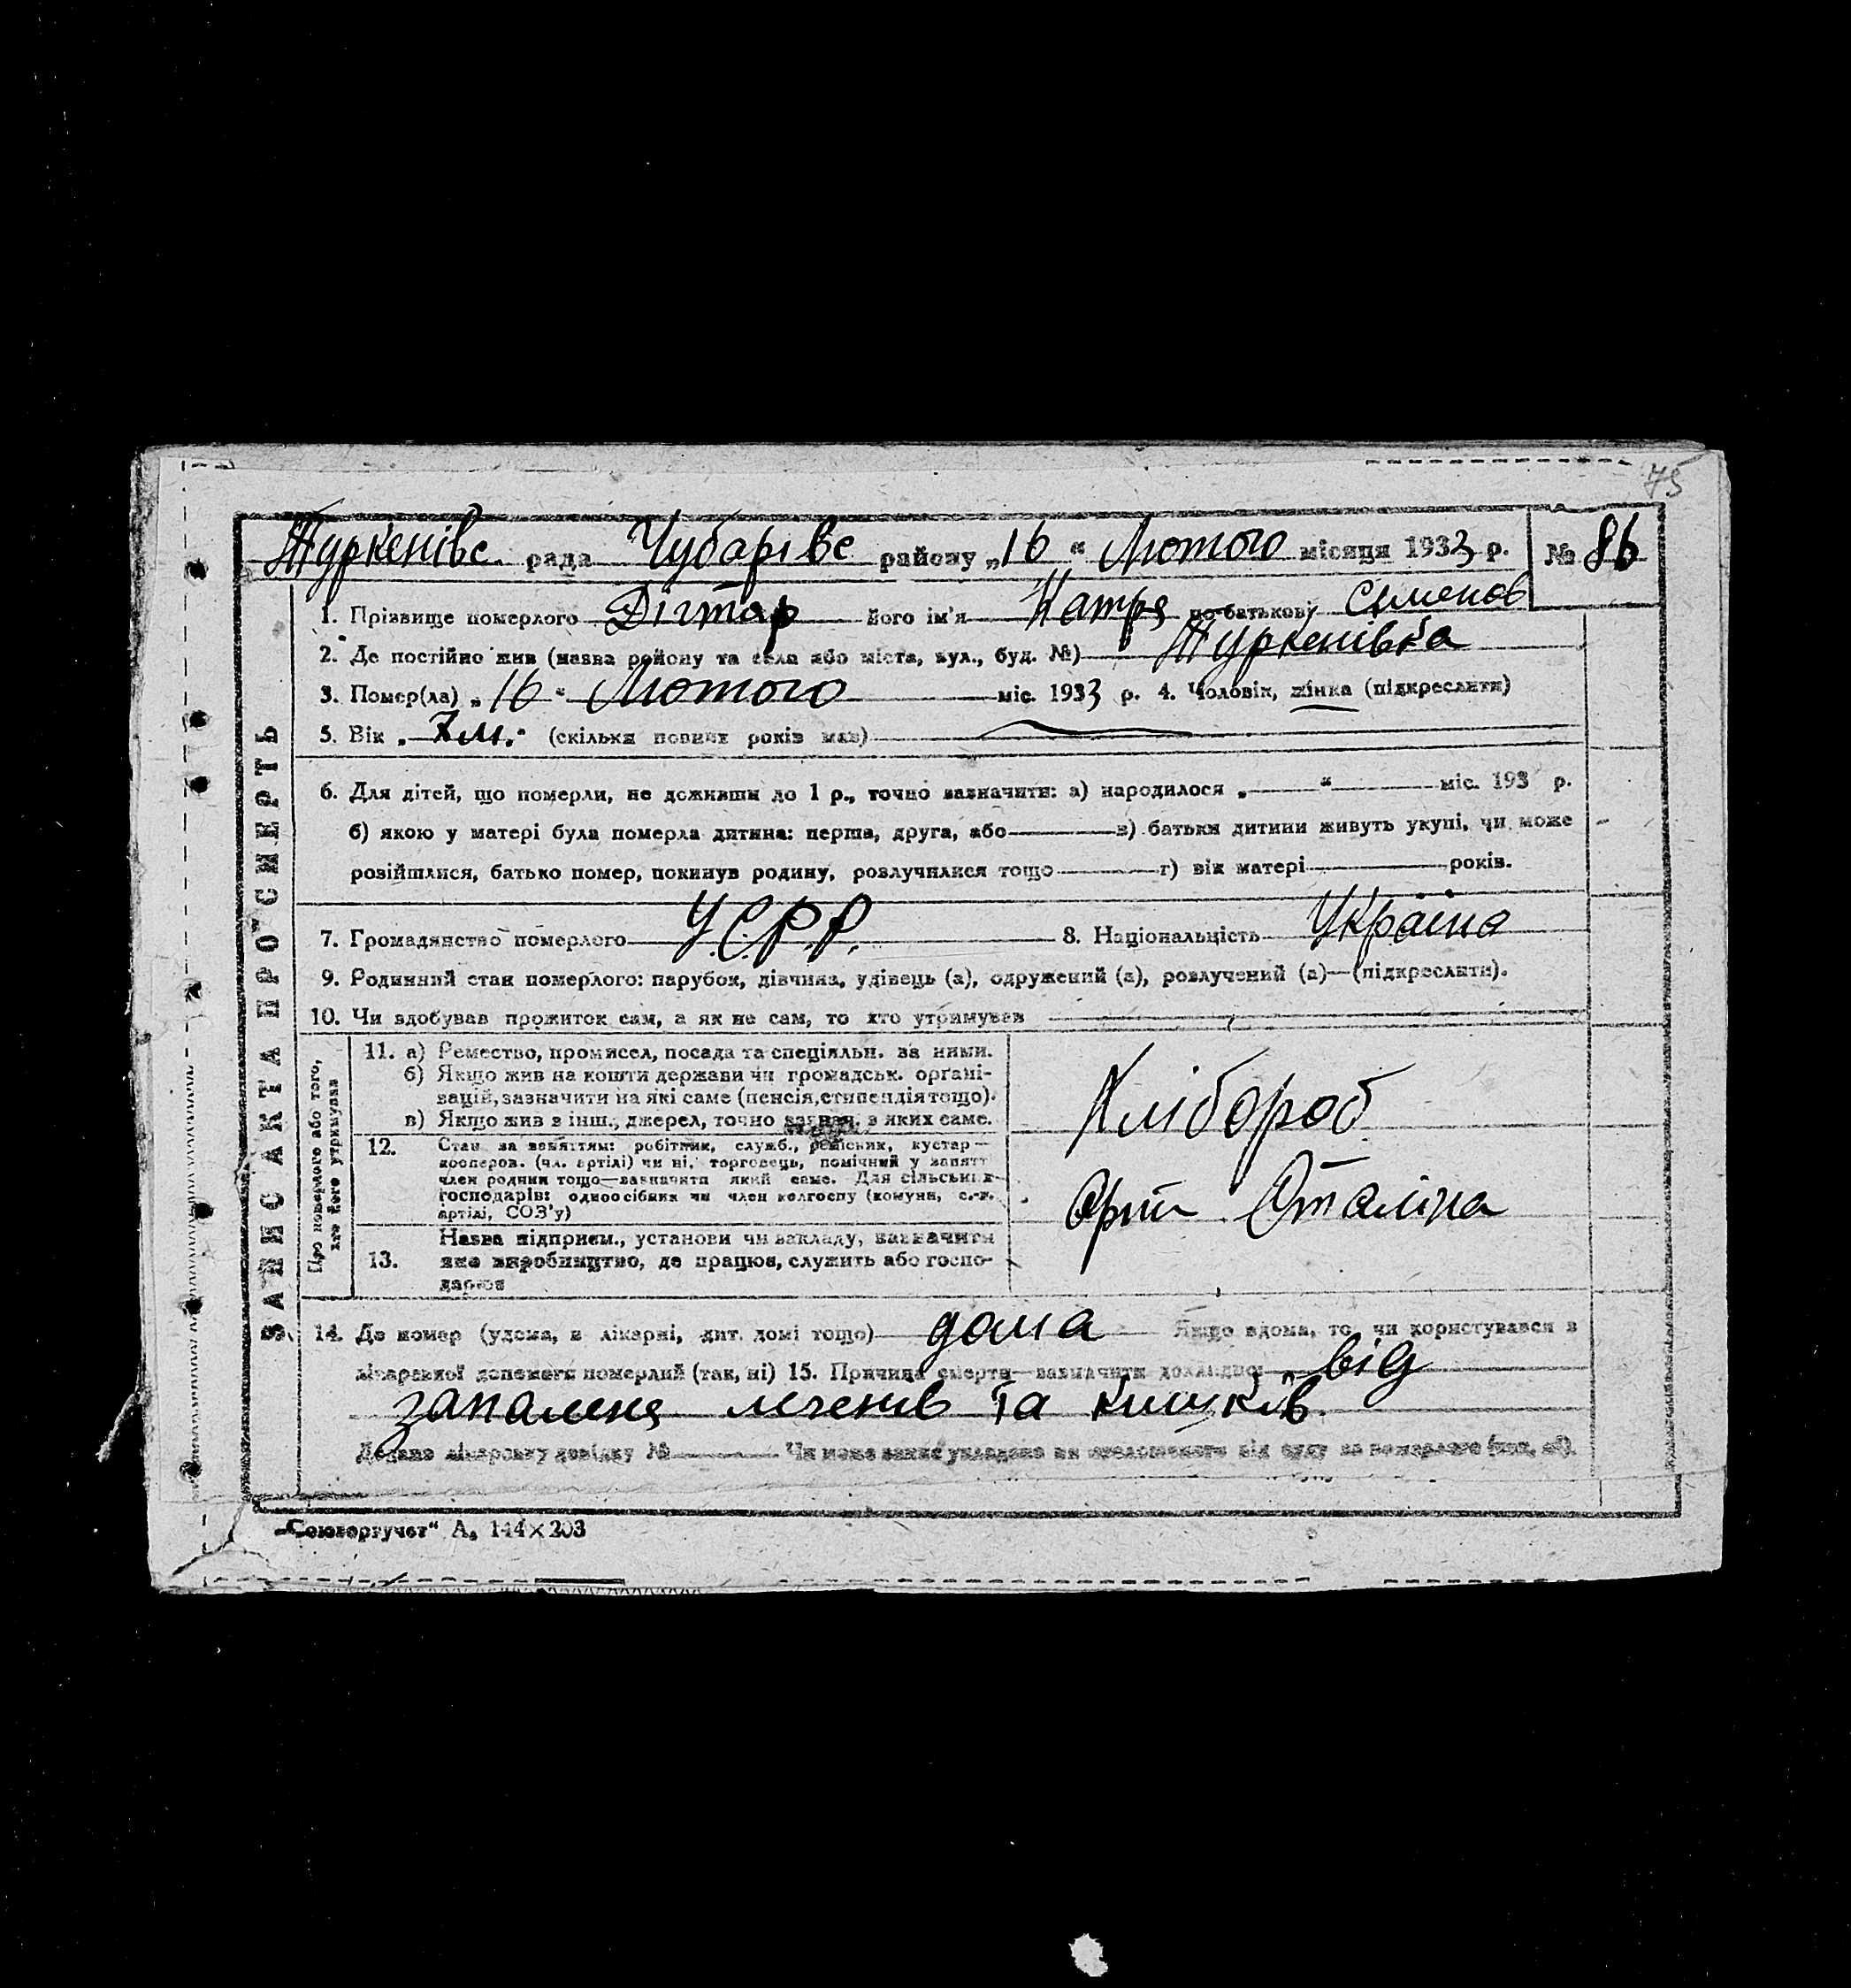 75
Туркенівс. рада Чубарівс району „16“ Лютого місяця 1933 р. № 86
ЗАПИС АКТА ПРО СМЕРТЬ
1. Прізвище померлого Дігтяр його ім'я Катря по-батькові Семенов
2. Де постійно жив (назва району та села або міста, вул., буд. №) Туркенівка
3. Помер(ла) „16“ Лютого міс. 1933 р. 4. Чоловік, жінка (підкреслити)
5. Вік „7 м.“ (скільки повних років мав)
6. Для дітей, що померли, не доживши до 1 р., точно зазначити: а) народилося „ “ міс. 193 р.
б) якою у матері була померла дитина: перша, друга, або в) батьки дитини живуть укупі, чи може
розійшлися, батько помер, покинув родину, розлучилися тощо г) вік матері років.
7. Громадянство померлого У.С.Р.Р. 8. Національність Україна
9. Родинний стан померлого: парубок, дівчина, удівець (а), одружений (а), розлучений (а)—(підкреслити).
10. Чи здобував прожиток сам, а як не сам, то хто утримував
Про померлого або того,
хто його утримував
11. а) Ремество, промисел, посада та спеціяльн. за ними.
б) Якщо жив на кошти держави чи громадськ. органі-
зацій, зазначити на які саме (пенсія, стипендія тощо).
в) Якщо жив з інш., джерел, точно зазнач. з яких саме.
Хлібороб
12. Стан за заняттям: робітник, служб., ремісник, кустар—
кооперов. (чл. артілі) чи ні, торговець, помічний у занятт
член родини тощо—зазначити який саме. Для сільських
господарів: одноосібник чи член колгоспу (комуни, с.-г.
артілі, СОЗ'у)
Арт Сталіна
13. Назва підприєм., установи чи закладу, зазначити
яке виробництво, де працює, служить або госпо-
дарює
14. Де помер (удома, в лікарні, дит. домі тощо) дома Якщо вдома, то чи користувався з
лікарської допомоги померлий (так, ні) 15. Причина смерти—зазначити докладно: від
запаленя леченів та кишків.
Додано лікарську довідку № Чи може запис укладено на
„Союзоргучет“ А₅ 144×203